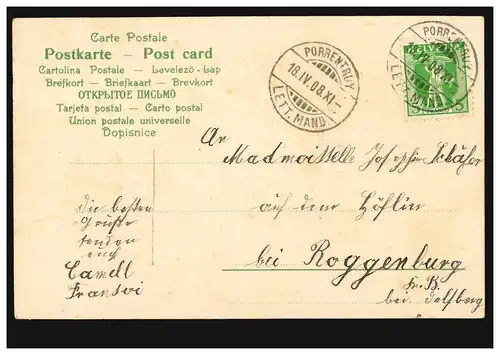 Carte Postale
Postkarte — Post card
Cartolina Postale — Levelező-Lap
Brefkort — Briefkaart — Brevkort
ОТКРЫТОЕ ПИСЬМО
Tarjeta postal — Carto postal
Union postale universelle
Dopisnice
PORRENTRUY
18.IV.08.XI
LETT. MAND.
PORRENTRUY
HELVETIA
LETT. MAND.
An
Madmoiselle Josephin Schäfer
auf dem Höflin
bei Roggenburg
K. B.
bei Delsberg
die besten
Grüße
senden
euch
Camell